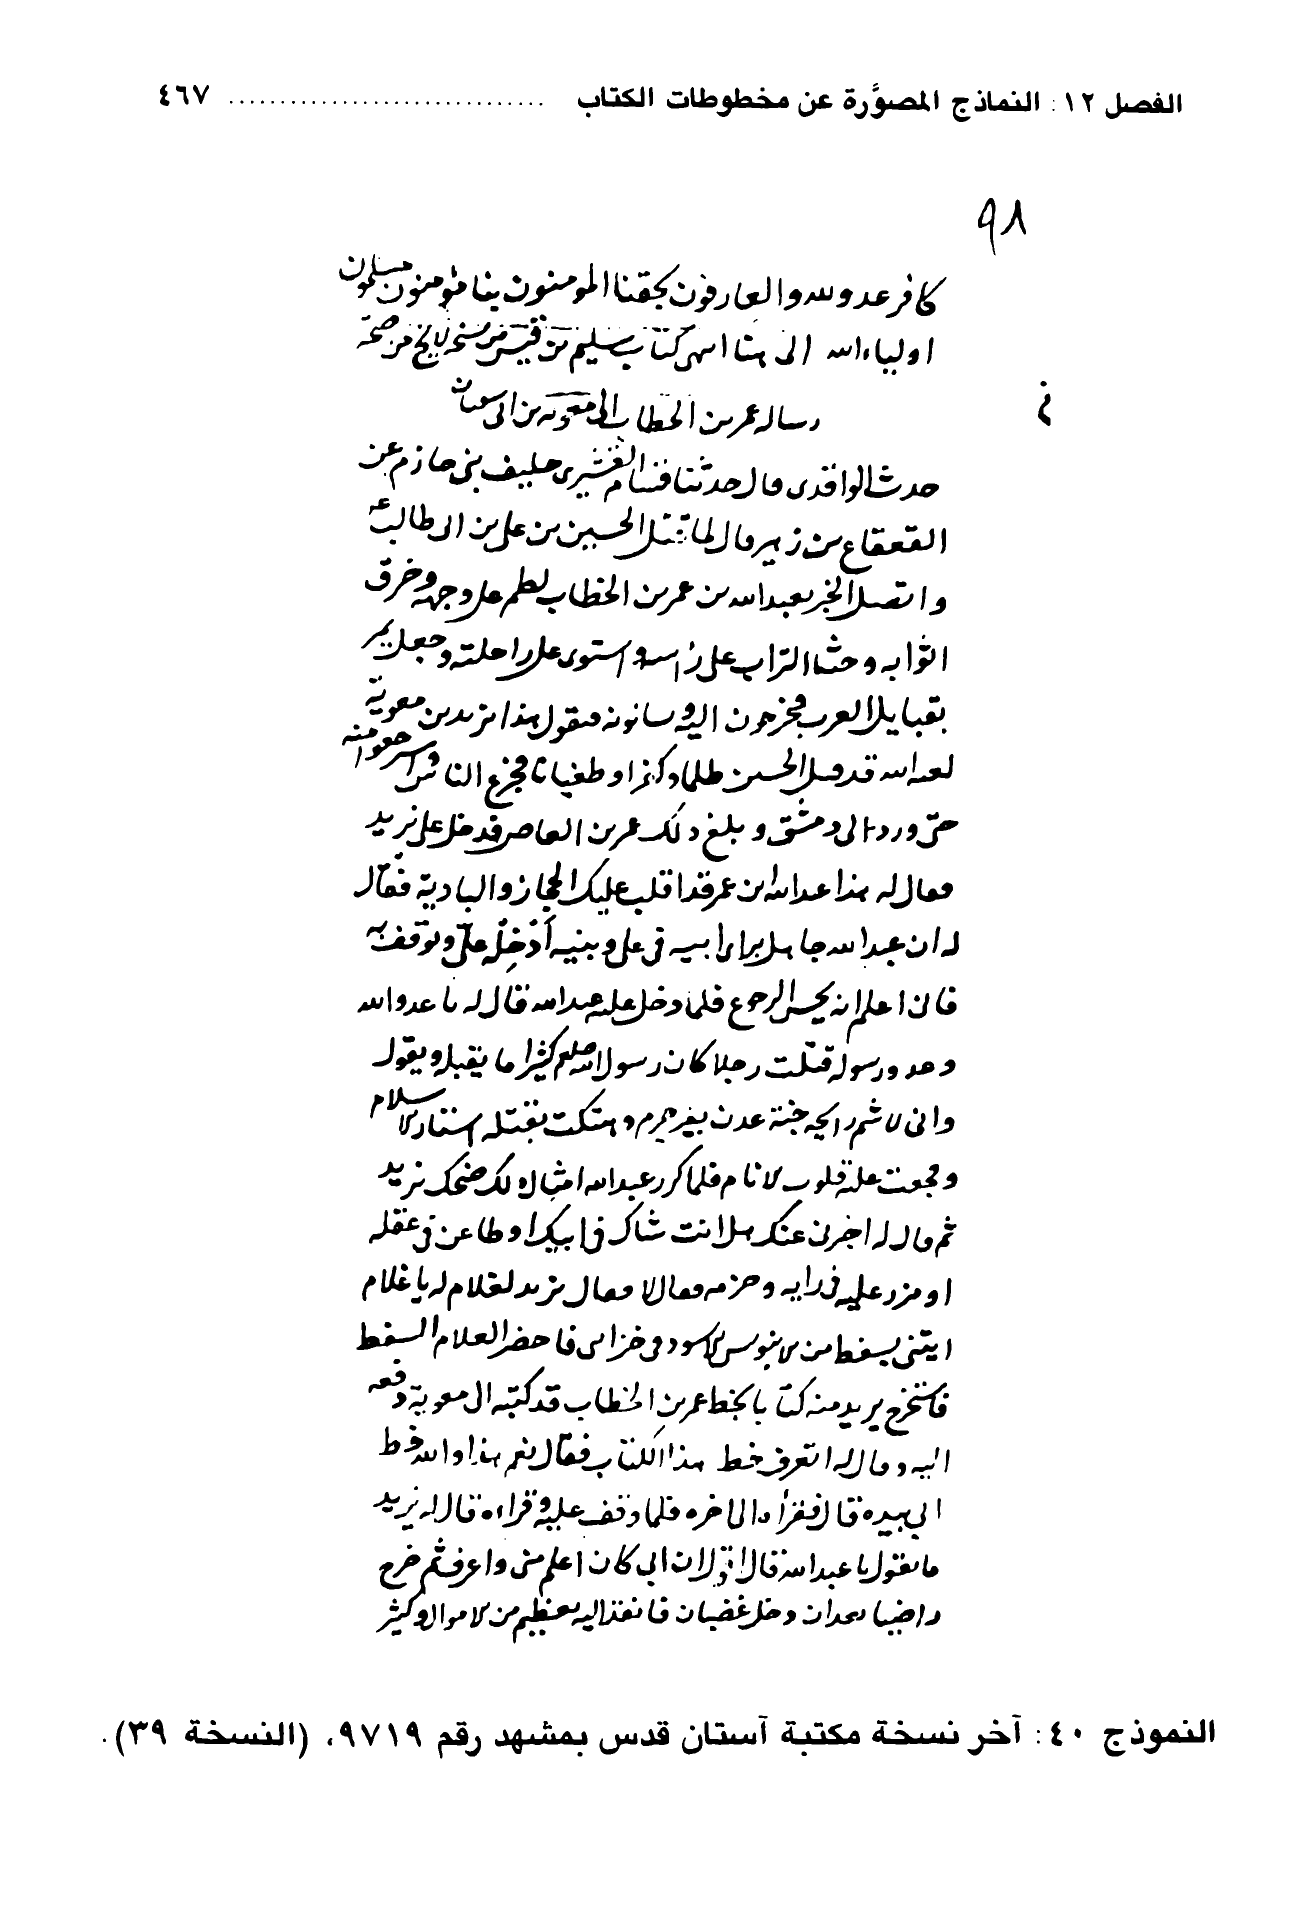 الفصل ١٢: النماذج المصوَّرة عن مخطوطات الكتاب .............................. ٤٦٧
٩٨
كافر عدو لله والعارفون بحقنا المومنون بنا مؤمنون مسلمون
اولياء الله الى هنا انتهى كتاب سليم بن قيس من نسخة لا يخ من صحة
رساله عمر بن الخطاب الى معويه بن ابى سفيان
حدث الواقدى قال حدثنا القشيرى حليف بنى حازم عن
القعقاع بن زهير قال لما قتل الحسين بن على بن ابى طالب ع
واتصل الخبر بعبد الله بن عمر بن الخطاب لطم على وجهه وخرق
اثوابه وحثا التراب على راسه واستوى على راحلته وجعل يمر
بقبايل العرب فيخرجون اليه ويسانونه فيقول هذا يزيد بن معوية
لعنه الله قد قتل الحسين ظلما وكفرا وطغيانا فجزع الناس واسترجعوا منه
حتى ورد الى دمشق وبلغ ذلك عمر بن العاص فدخل على يزيد
فقال له هذا عبد الله ابن عمر قد اقلب عليك الحجاز والبادية فقال
له ان عبد الله جاهل برأى ابيه فى على وبنيه أدْخِلْه علىّ وتوقف به
فانى اعلم انه يحسن الرجوع فلما دخل عليه عبد الله قال له يا عدو الله
وعدو رسوله قتلت رجلا كان رسول الله صلعم كثيرا ما يقبله ويقول
وانى لاشم رايحه جنة عدن بغير جرم وهتكت بقتله استار الاسلام
وفجعت عليه قلوب الانام فلما كرر عبد الله امثال ذلك ضحك يزيد
ثم قال له اخبرنى عنك هل انت شاك فى ابيك او طاعن فى عقله
او مزر عليه فى رايه وحزمه فقال لا فقال يزيد لغلام له يا غلام
ايتنى بسفط من الابنوس الاسود فى خزانتى فاحضر الغلام السفط
فاستخرج يزيد منه كتابا بخط عمر بن الخطاب قد كتبه الى معوية دفعه
اليه وقال له اتعرف خط هذا الكتاب فقال نعم هذا والله خط
ابى بيده قال فقرأه الى اخره فلما وقف عليه وقراءه قال له يزيد
ما تقول يا عبد الله قال اقول ان ابى كان اعلم منى واعرف ثم خرج
راضيا بعد ان دخل غضبان فانفذ اليه بعظيم من الاموال وكثير
النموذج ٤٠: آخر نسخة مكتبة آستان قدس بمشهد رقم ٩٧١٩، (النسخة ٣٩).